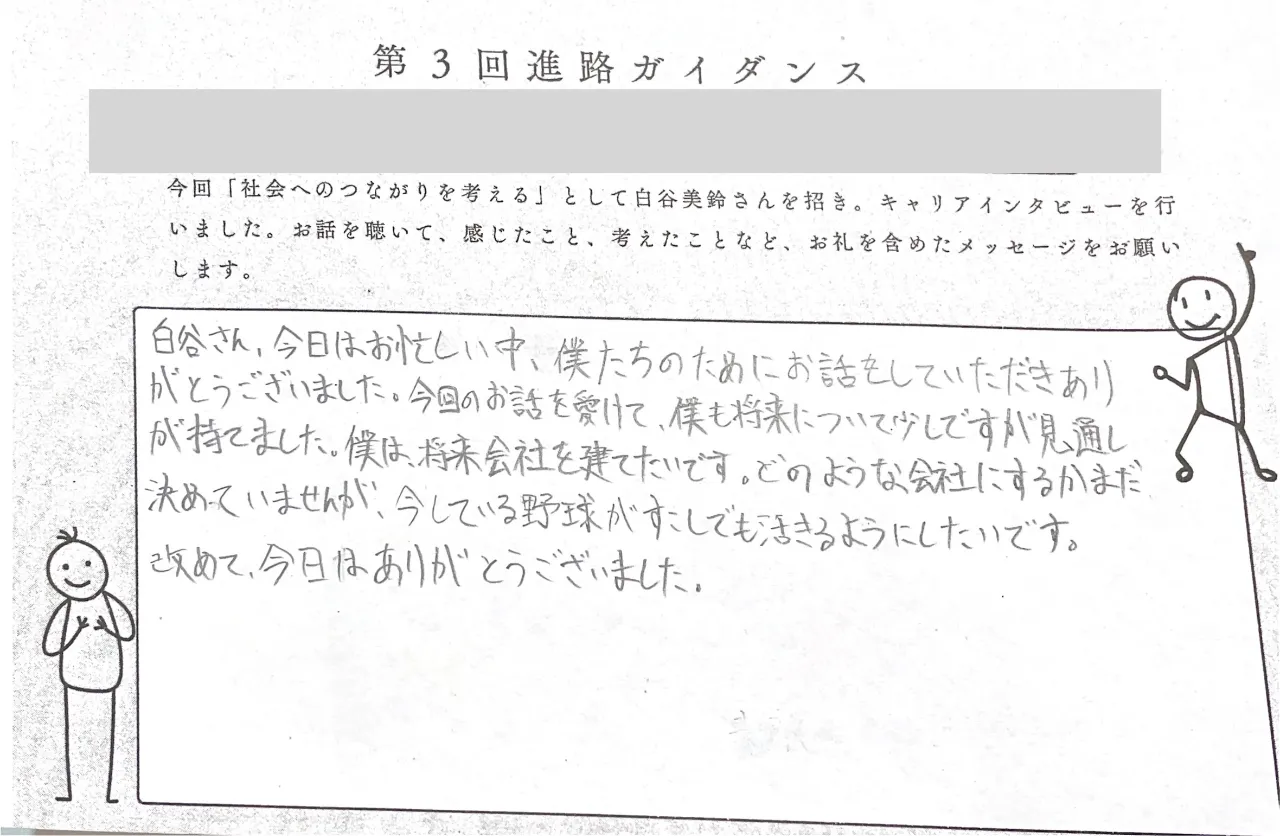 第3回進路ガイダンス
今回「社会へのつながりを考える」として白谷美鈴さんを招き。キャリアインタビューを行
いました。お話を聴いて、感じたこと、考えたことなど、お礼を含めたメッセージをお願い
します。
白谷さん、今日はお忙しい中、僕たちのためにお話をしていただきあり
がとうございました。今回のお話を受けて、僕も将来について少しですが見通し
が持てました。僕は、将来会社を建てたいです。どのような会社にするかまだ
決めていませんが、今している野球がすこしでも活きるようにしたいです。
改めて、今日はありがとうございました。